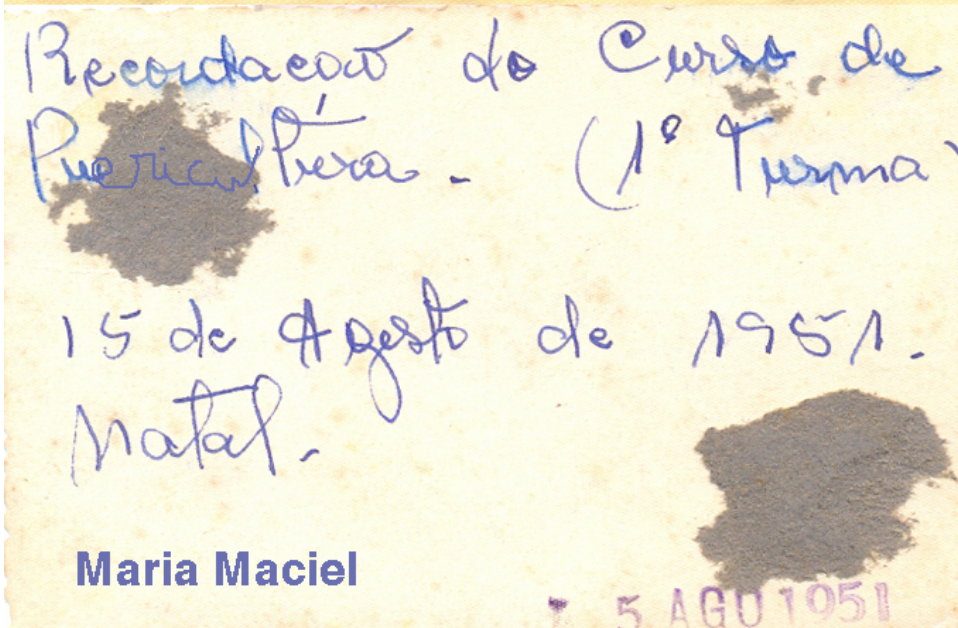 Recordação do Curso de
Puericultura. (1º Turma)
15 de Agosto de 1951.
Natal.
Maria Maciel
5 AGO 1951